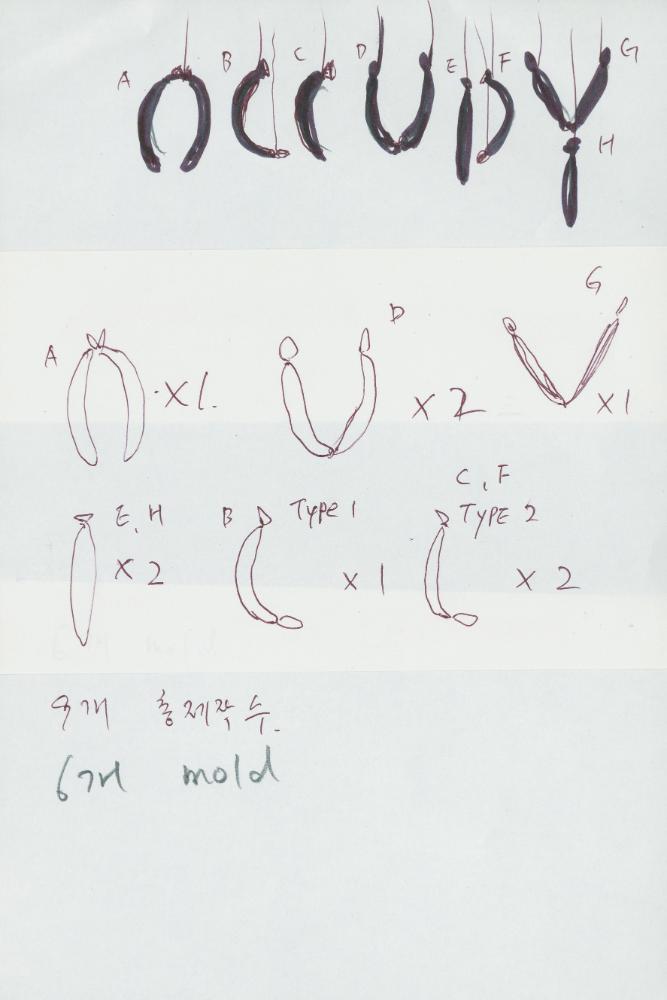 A B C D E F G
OCCUPY
H
G
A D
×1. ×2 ×1
C, F
E, H B Type 1 TYPE 2
×2 ×1 ×2
9개 총제작수.
6개 mold